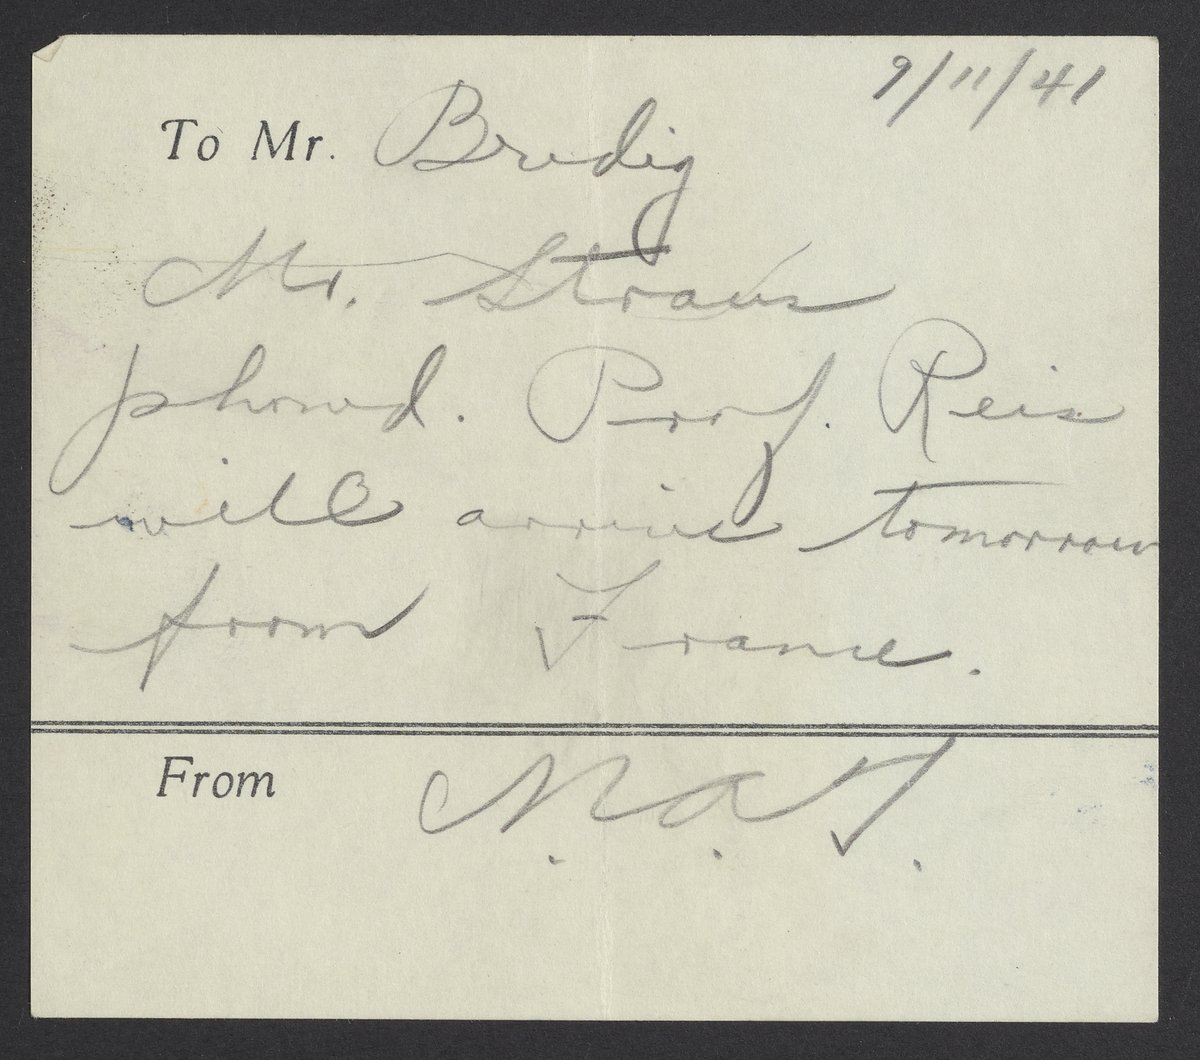 9/11/41
To Mr. Bredig
Mr. Straus
phoned. Prof. Reis
will arrive tomorrow
from France.
From N.A.T.